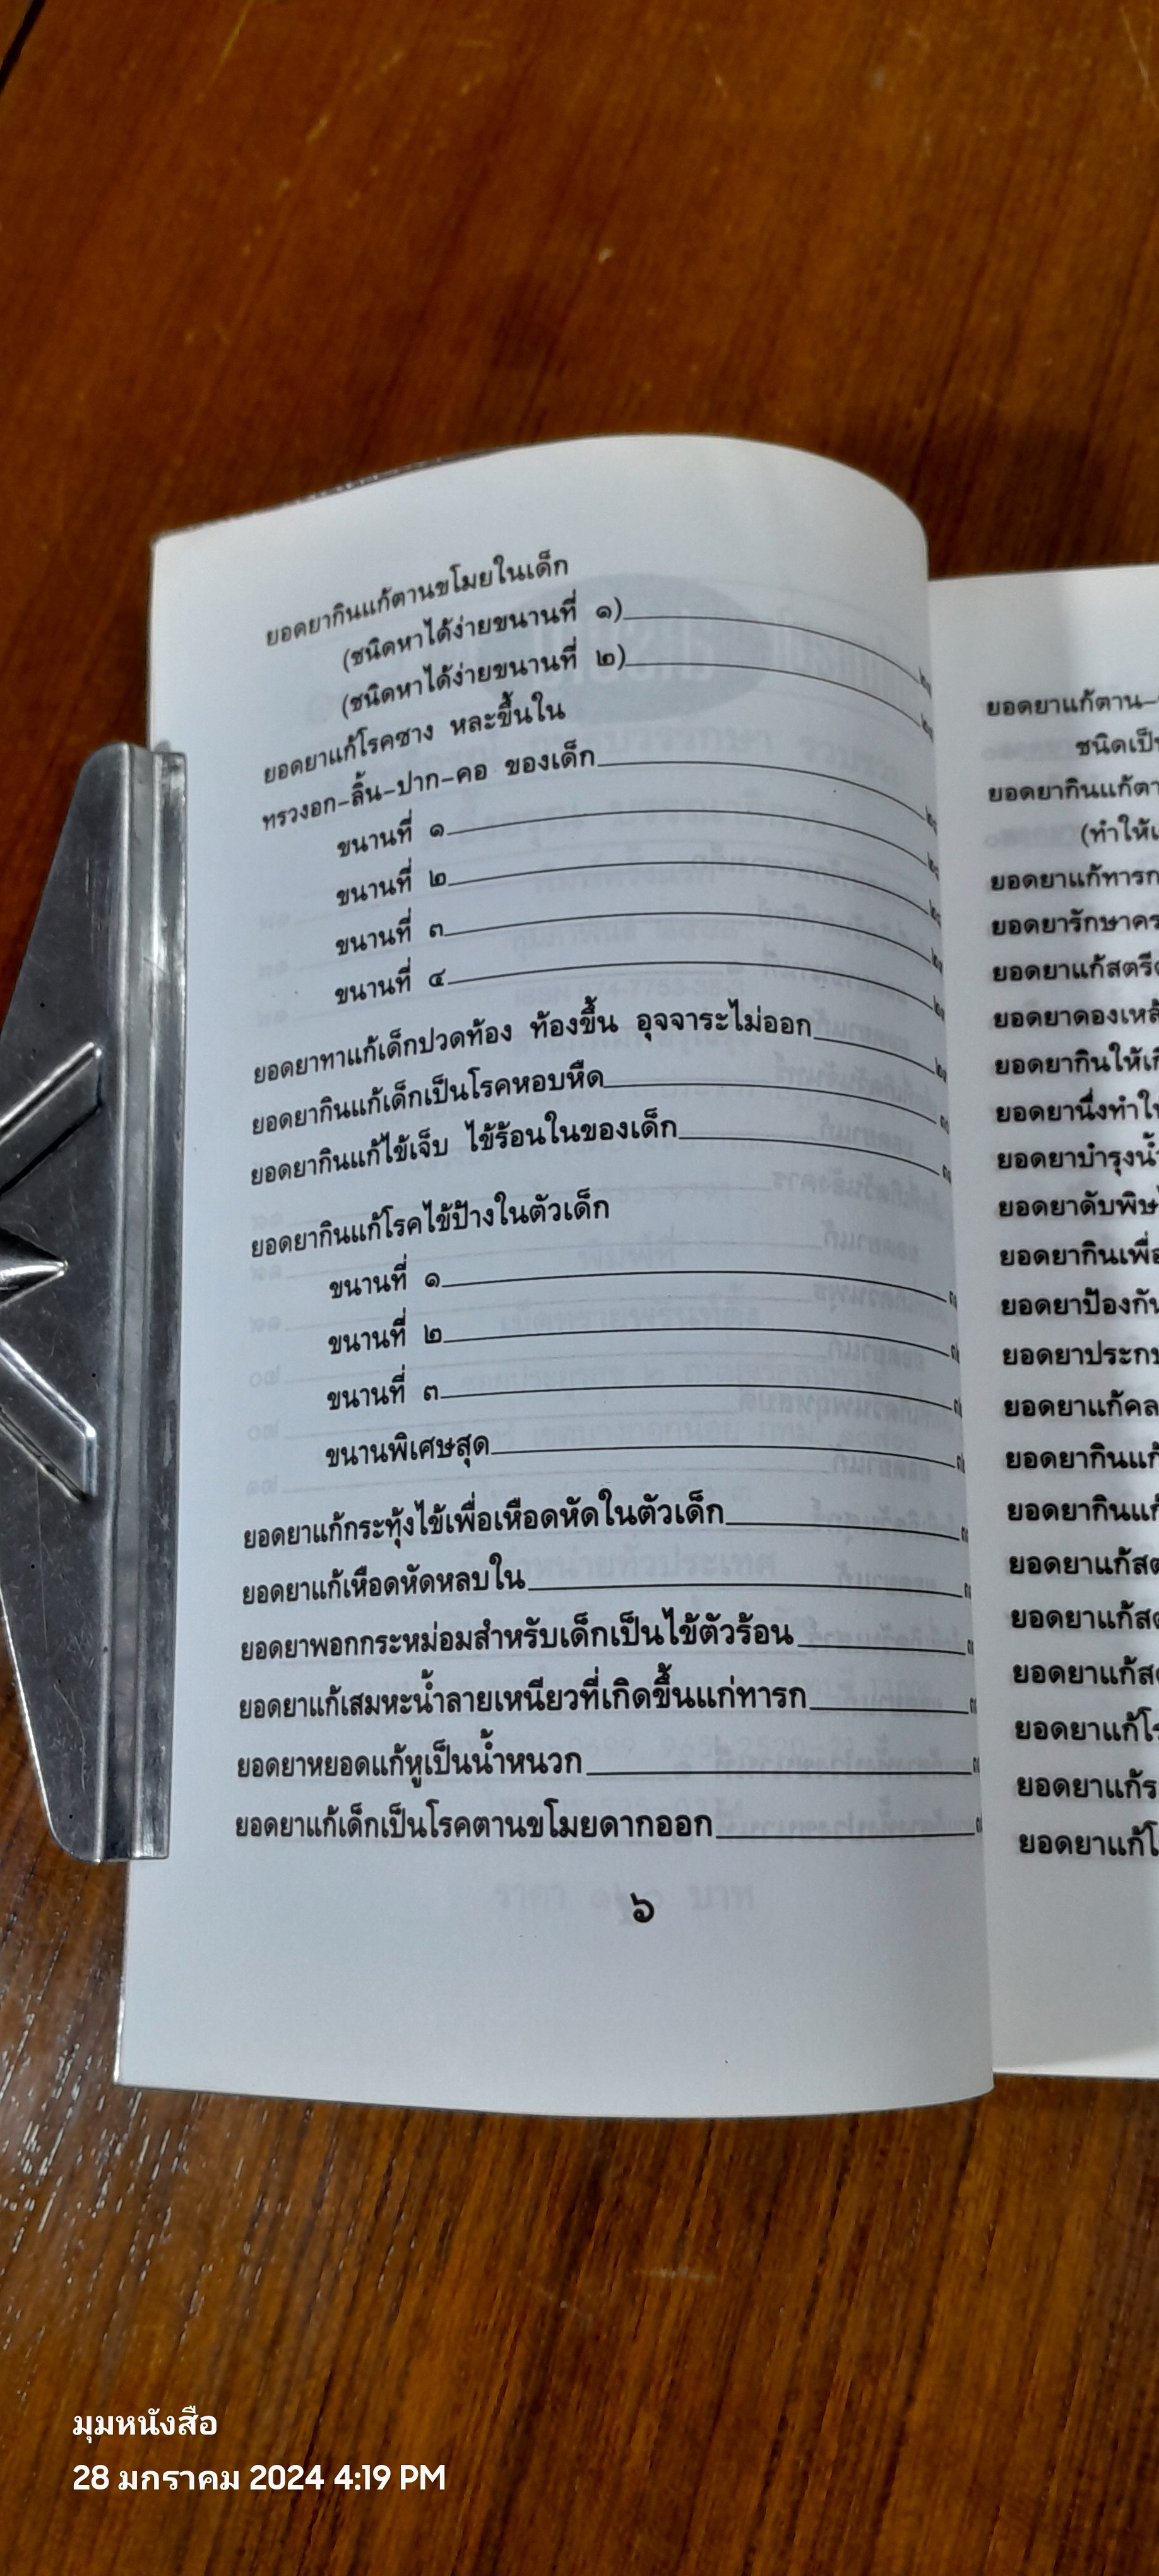 ยอดยากินแก้ตานขโมยในเด็ก
(ชนิดหาได้ง่ายขนานที่ ๑)
(ชนิดหาได้ง่ายขนานที่ ๒)
ยอดยาแก้โรคซาง หละขึ้นใน
ทรวงอก-ลิ้น-ปาก-คอ ของเด็ก
ขนานที่ ๑
ขนานที่ ๒
ขนานที่ ๓
ขนานที่ ๔
ยอดยาทาแก้เด็กปวดท้อง ท้องขึ้น อุจจาระไม่ออก
ยอดยากินแก้เด็กเป็นโรคหอบหืด
ยอดยากินแก้ไข้เจ็บ ไข้ร้อนในของเด็ก
ยอดยากินแก้โรคไข้ป้างในตัวเด็ก
ขนานที่ ๑
ขนานที่ ๒
ขนานที่ ๓
ขนานพิเศษสุด
ยอดยาแก้กระทุ้งไข้เพื่อเหือดหัดในตัวเด็ก
ยอดยาแก้เหือดหัดหลบใน
ยอดยาพอกกระหม่อมสำหรับเด็กเป็นไข้ตัวร้อน
ยอดยาแก้เสมหะน้ำลายเหนียวที่เกิดขึ้นแก่ทารก
ยอดยาหยอดแก้หูเป็นน้ำหนวก
ยอดยาแก้เด็กเป็นโรคตานขโมยดากออก
๖
ยอดยาแก้ตาน-
ชนิดเป็
ยอดยากินแก้ตา
(ทำให้
ยอดยาแก้ทารก
ยอดยารักษาคร
ยอดยาแก้สตรี
ยอดยาดองเหล้
ยอดยากินให้เกิ
ยอดยานึ่งทำให้
ยอดยาบำรุงน้ำ
ยอดยาดับพิษ
ยอดยากินเพื่อ
ยอดยาป้องกัน
ยอดยาประกบ
ยอดยาแก้คล
ยอดยากินแก้
ยอดยากินแก้
ยอดยาแก้สต
ยอดยาแก้สต
ยอดยาแก้สต
ยอดยาแก้โร
ยอดยาแก้ร
ยอดยาแก้โ
มุมหนังสือ
28 มกราคม 2024 4:19 PM